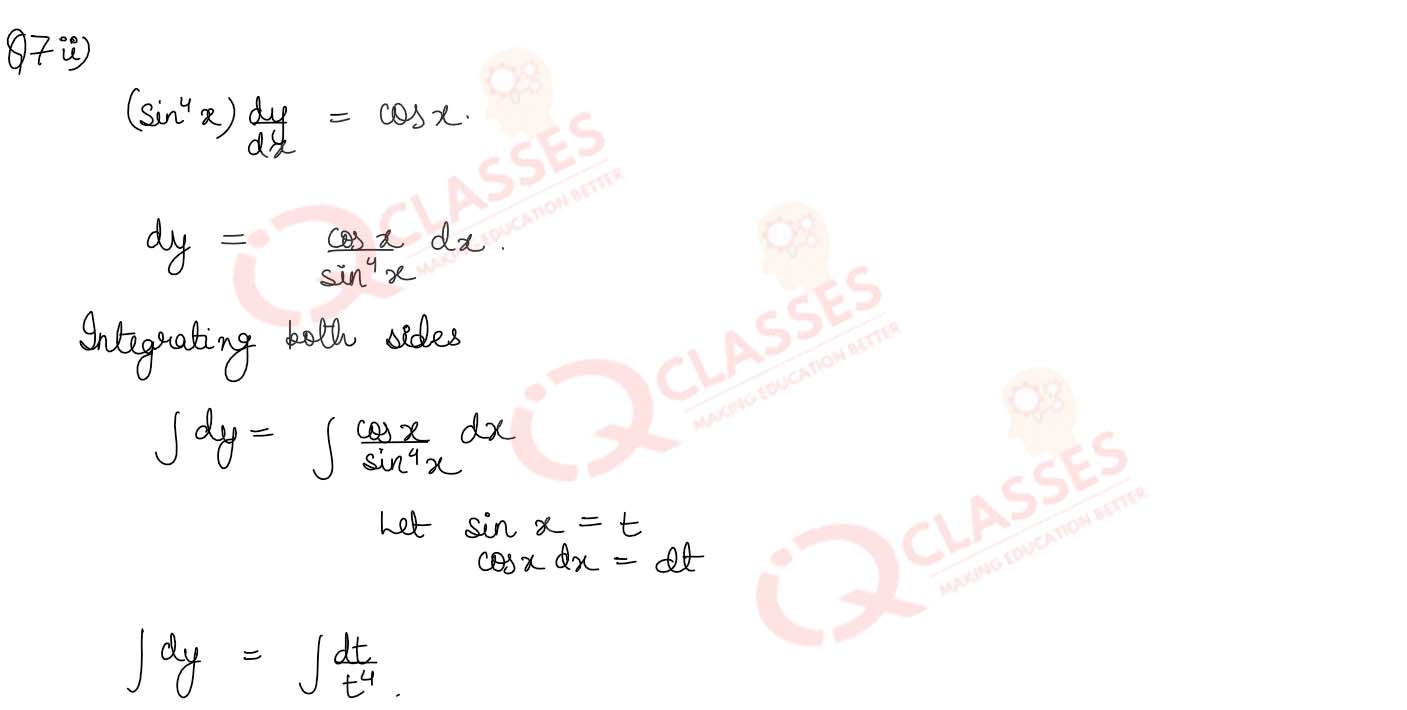 Q7 ii)
(sin⁴ x) dy/dx = cos x.
dy = cos x/sin⁴ x dx.
Integrating both sides
∫ dy = ∫ cos x/sin⁴ x dx
Let sin x = t
cos x dx = dt
∫ dy = ∫ dt/t⁴.
iQ CLASSES
MAKING EDUCATION BETTER
iQ CLASSES
MAKING EDUCATION BETTER
iQ CLASSES
MAKING EDUCATION BETTER